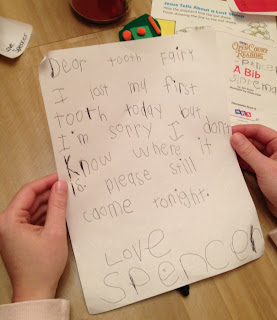 Dear tooth fairy
I lost my first
tooth today but
I'm sorry I don't
know where it
is please still
come tonight.
Love
Spencer
Jesus Talks About a Lost
Open Court
Reading
A Bib
SRA